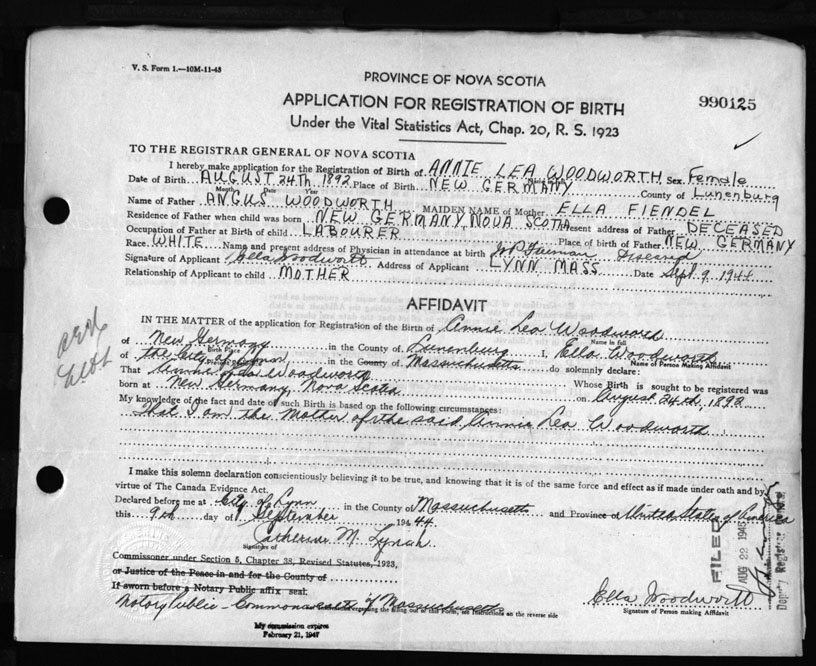 V. S. Form 1.—10M-11-43
PROVINCE OF NOVA SCOTIA
990125
APPLICATION FOR REGISTRATION OF BIRTH
Under the Vital Statistics Act, Chap. 20, R. S. 1923
TO THE REGISTRAR GENERAL OF NOVA SCOTIA
I hereby make application for the Registration of Birth of ANNIE LEA WOODWORTH Sex Female
Date of Birth AUGUST 24TH 1892 Place of Birth NEW GERMANY County of Lunenburg
Month Date Year
Name of Father ANGUS WOODWORTH MAIDEN NAME of Mother ELLA FIENDEL
Residence of Father when child was born NEW GERMANY, NOVA SCOTIA Present address of Father DECEASED
Occupation of Father at Birth of child LABOURER Place of birth of Father NEW GERMANY
Race WHITE Name and present address of Physician in attendance at birth Deceased
Signature of Applicant Ella Woodworth Address of Applicant LYNN MASS Date Sept. 9 1944
Relationship of Applicant to child MOTHER
AFFIDAVIT
IN THE MATTER of the application for Registration of the Birth of Annie Lea Woodworth
Name in full
of New Germany in the County of Lunenburg I, Ella Woodworth
Birth Place Name of Person Making Affidavit
of the City of Lynn in the County of Massachusetts do solemnly declare:
That Annie Lea Woodworth Whose Birth is sought to be registered was
born at New Germany, Nova Scotia on August 24th, 1892
My knowledge of the fact and date of such Birth is based on the following circumstances:
That I am the Mother of the said Annie Lea Woodworth
I make this solemn declaration conscientiously believing it to be true, and knowing that it is of the same force and effect as if made under oath and by
virtue of The Canada Evidence Act.
Declared before me at City of Lynn in the County of Massachusetts and Province of United States of America
this 9th day of September 1944
Catherine M. Lynch
Signature of
Commissioner under Section 5, Chapter 38, Revised Statutes, 1923,
or Justice of the Peace in and for the County of
If sworn before a Notary Public affix seal.
Notary Public - Commonwealth of Massachusetts
regarding the filling out of this Form, see Instructions on the reverse side
My commission expires
February 21, 1947
Ella Woodworth
Signature of Person making Affidavit
FILED
AUG 22 194
Deputy Registrar